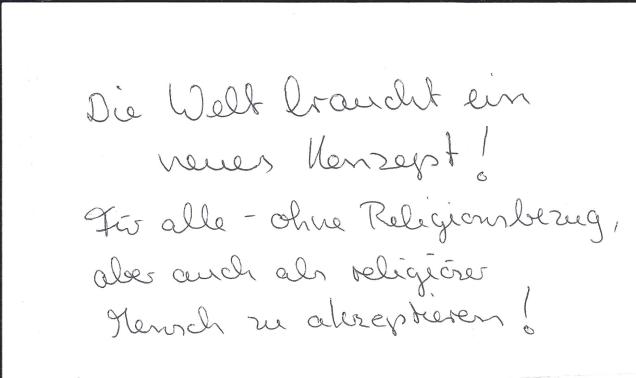 Die Welt braucht ein
neues Konzept!
Für alle - ohne Religionsbezug,
aber auch als religiöser
Mensch zu akzeptieren!